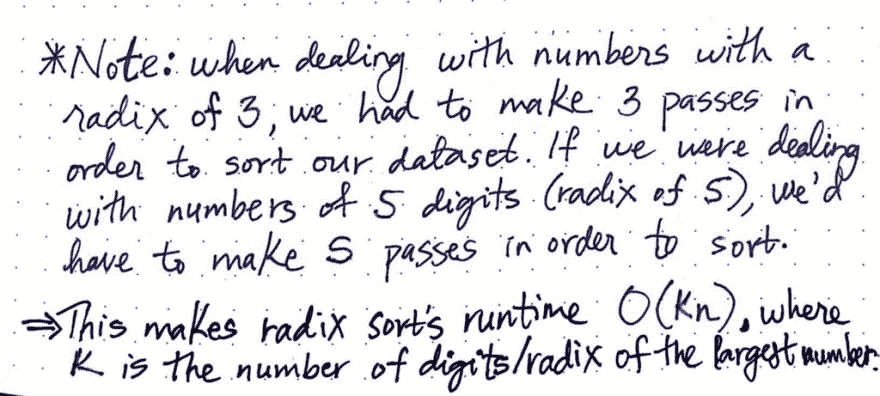 *Note: when dealing with numbers with a
radix of 3, we had to make 3 passes in
order to sort our dataset. If we were dealing
with numbers of 5 digits (radix of 5), we'd
have to make 5 passes in order to sort.
⇒This makes radix sort's runtime O(kn), where
K is the number of digits/radix of the largest number.